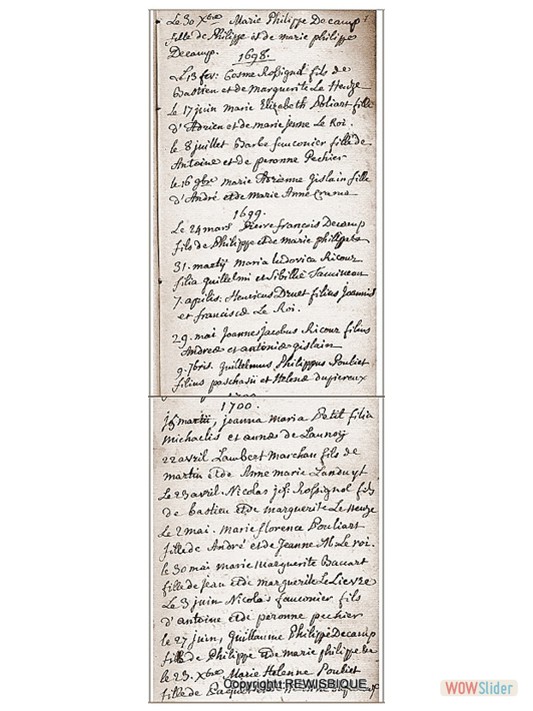 Le 30 Xbre Marie Philippe Decamp
fille de Philippe et de marie philippe
Decamp. 1698.
Le 13 fev: Cosme Rossignol fils de
Bastien et de marguerite Le Heuze
Le 17 juin marie Elizabeth Poliart fille
d'Adrien et de marie jenne Le Roi.
le 8 juillet Barbe fauconier fille de
Antoine et de peronne Pechier
le 16 9bre marie Adrienne Gislain fille
d'André et de Marie Anne
1699.
Le 24 mars Pierre françois Decamp
fils de Philippe et de marie philippe
31. martij maria ludovica Ricour
filia guillelmi et Sibillie
7. aprilis: Henricus Druet filius Joannis
et francisca Le Roi.
29. mai Joannes jacobus Ricour filius
Andreæ et antonia gislain
9. 7bris. Guillelmus Philippus Pouliet
filius paschasii et Helenæ dupiereux
1700.
martii, joanna maria Petit filia
michaelis et annæ de Launoy
22 avril Lambert marchan fils de
martin et de Anne marie Landuyt
Le 23 avril. Nicolas jos: Rossignol fils
de bastien et de marguerite Le heuze
Le 2 mai. marie florence Pouliart
fille de André et de Jeanne M. Le roi.
le 30 mai marie marguerite Bacart
fille de Jean et de marguerite Le Lievre
Le 3 juin Nicolas fauconier fils
d'antoine et de peronne pechier
le 27 juin, Guillaume Philippe Decamp
fils de Philippe et de marie philippe
le 23. Xbre Marie Helenne Pouliet
fille de
Copyright REWISBIQUE
WOWSlider